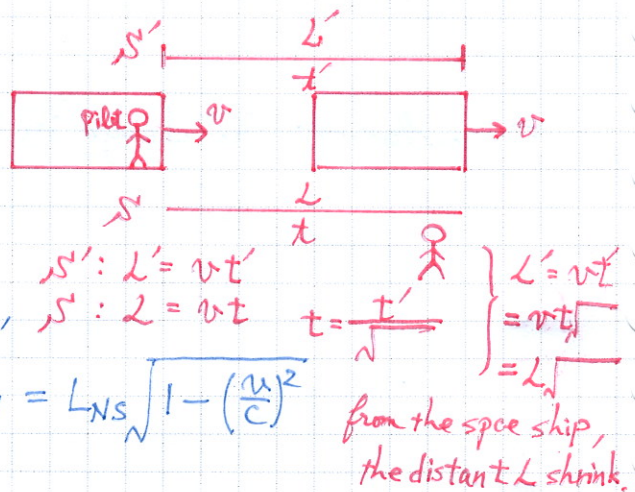 S' L'
t'
pilot v v
L
S t
S': L' = vt'
S: L = vt
t = t'/√
L' = vt'
= vt√
= L√
= L_NS √(1 - (v/c)²)
from the spce ship,
the distant L shrink.